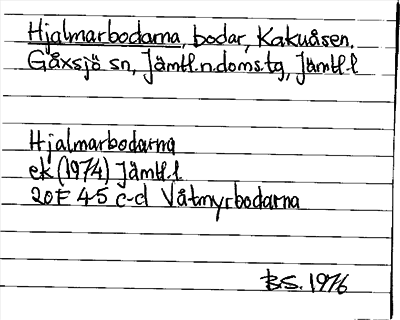 Hjalmarbodarna, bodar, Kakuåsen.
Gåxsjö sn, Jämtl.n.doms.tg, Jämtl.l
Hjalmarbodarna
ek (1974) Jämtl.l
20F 4-5 c-d Våtmyrbodarna
BS. 1976